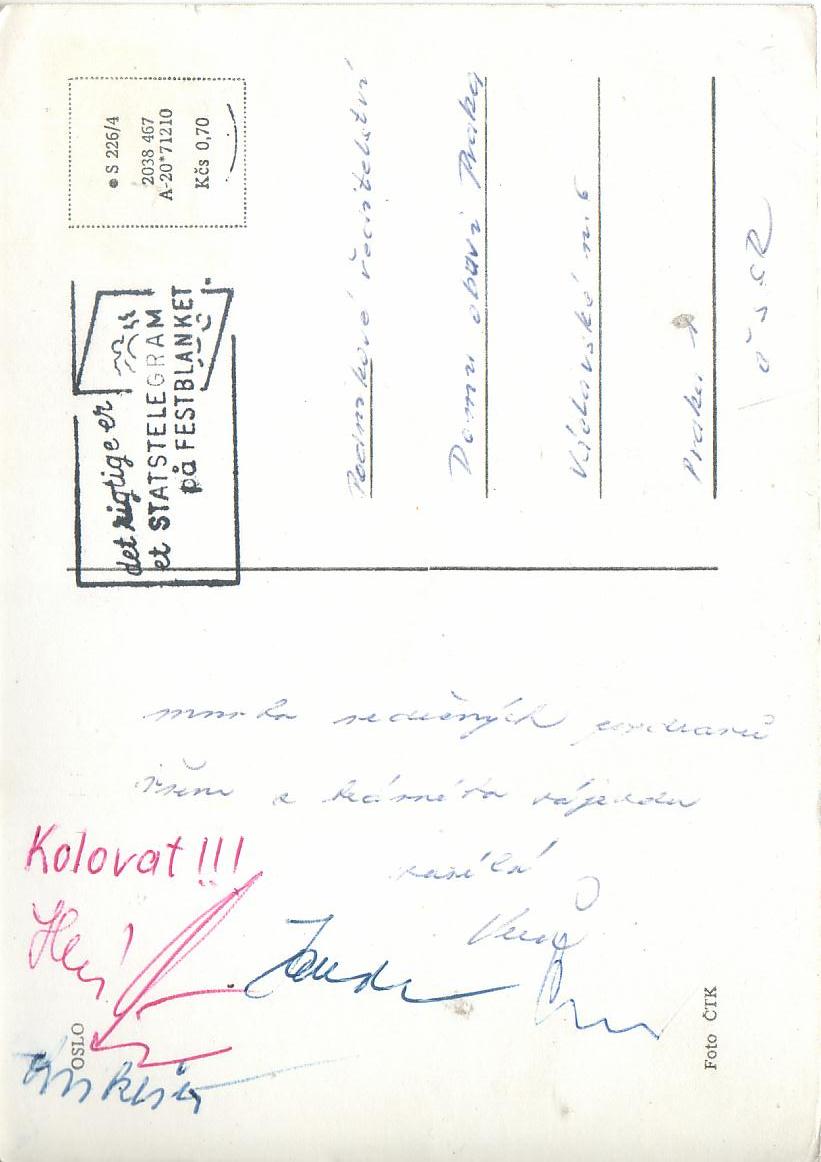 S 226/4
2038 467
A-20*71210
Kčs 0,70
det rigtige er
et STATSTELEGRAM
på FESTBLANKET
Podnikové ředitelství
Domu obuvi Praha
Václavské n. 6
Praha 1
ČSSR
mnoho srdečných pozdravů
všem z krásného zájezdu
zasílá
Kolovat!!!
Janda
OSLO
Foto ČTK